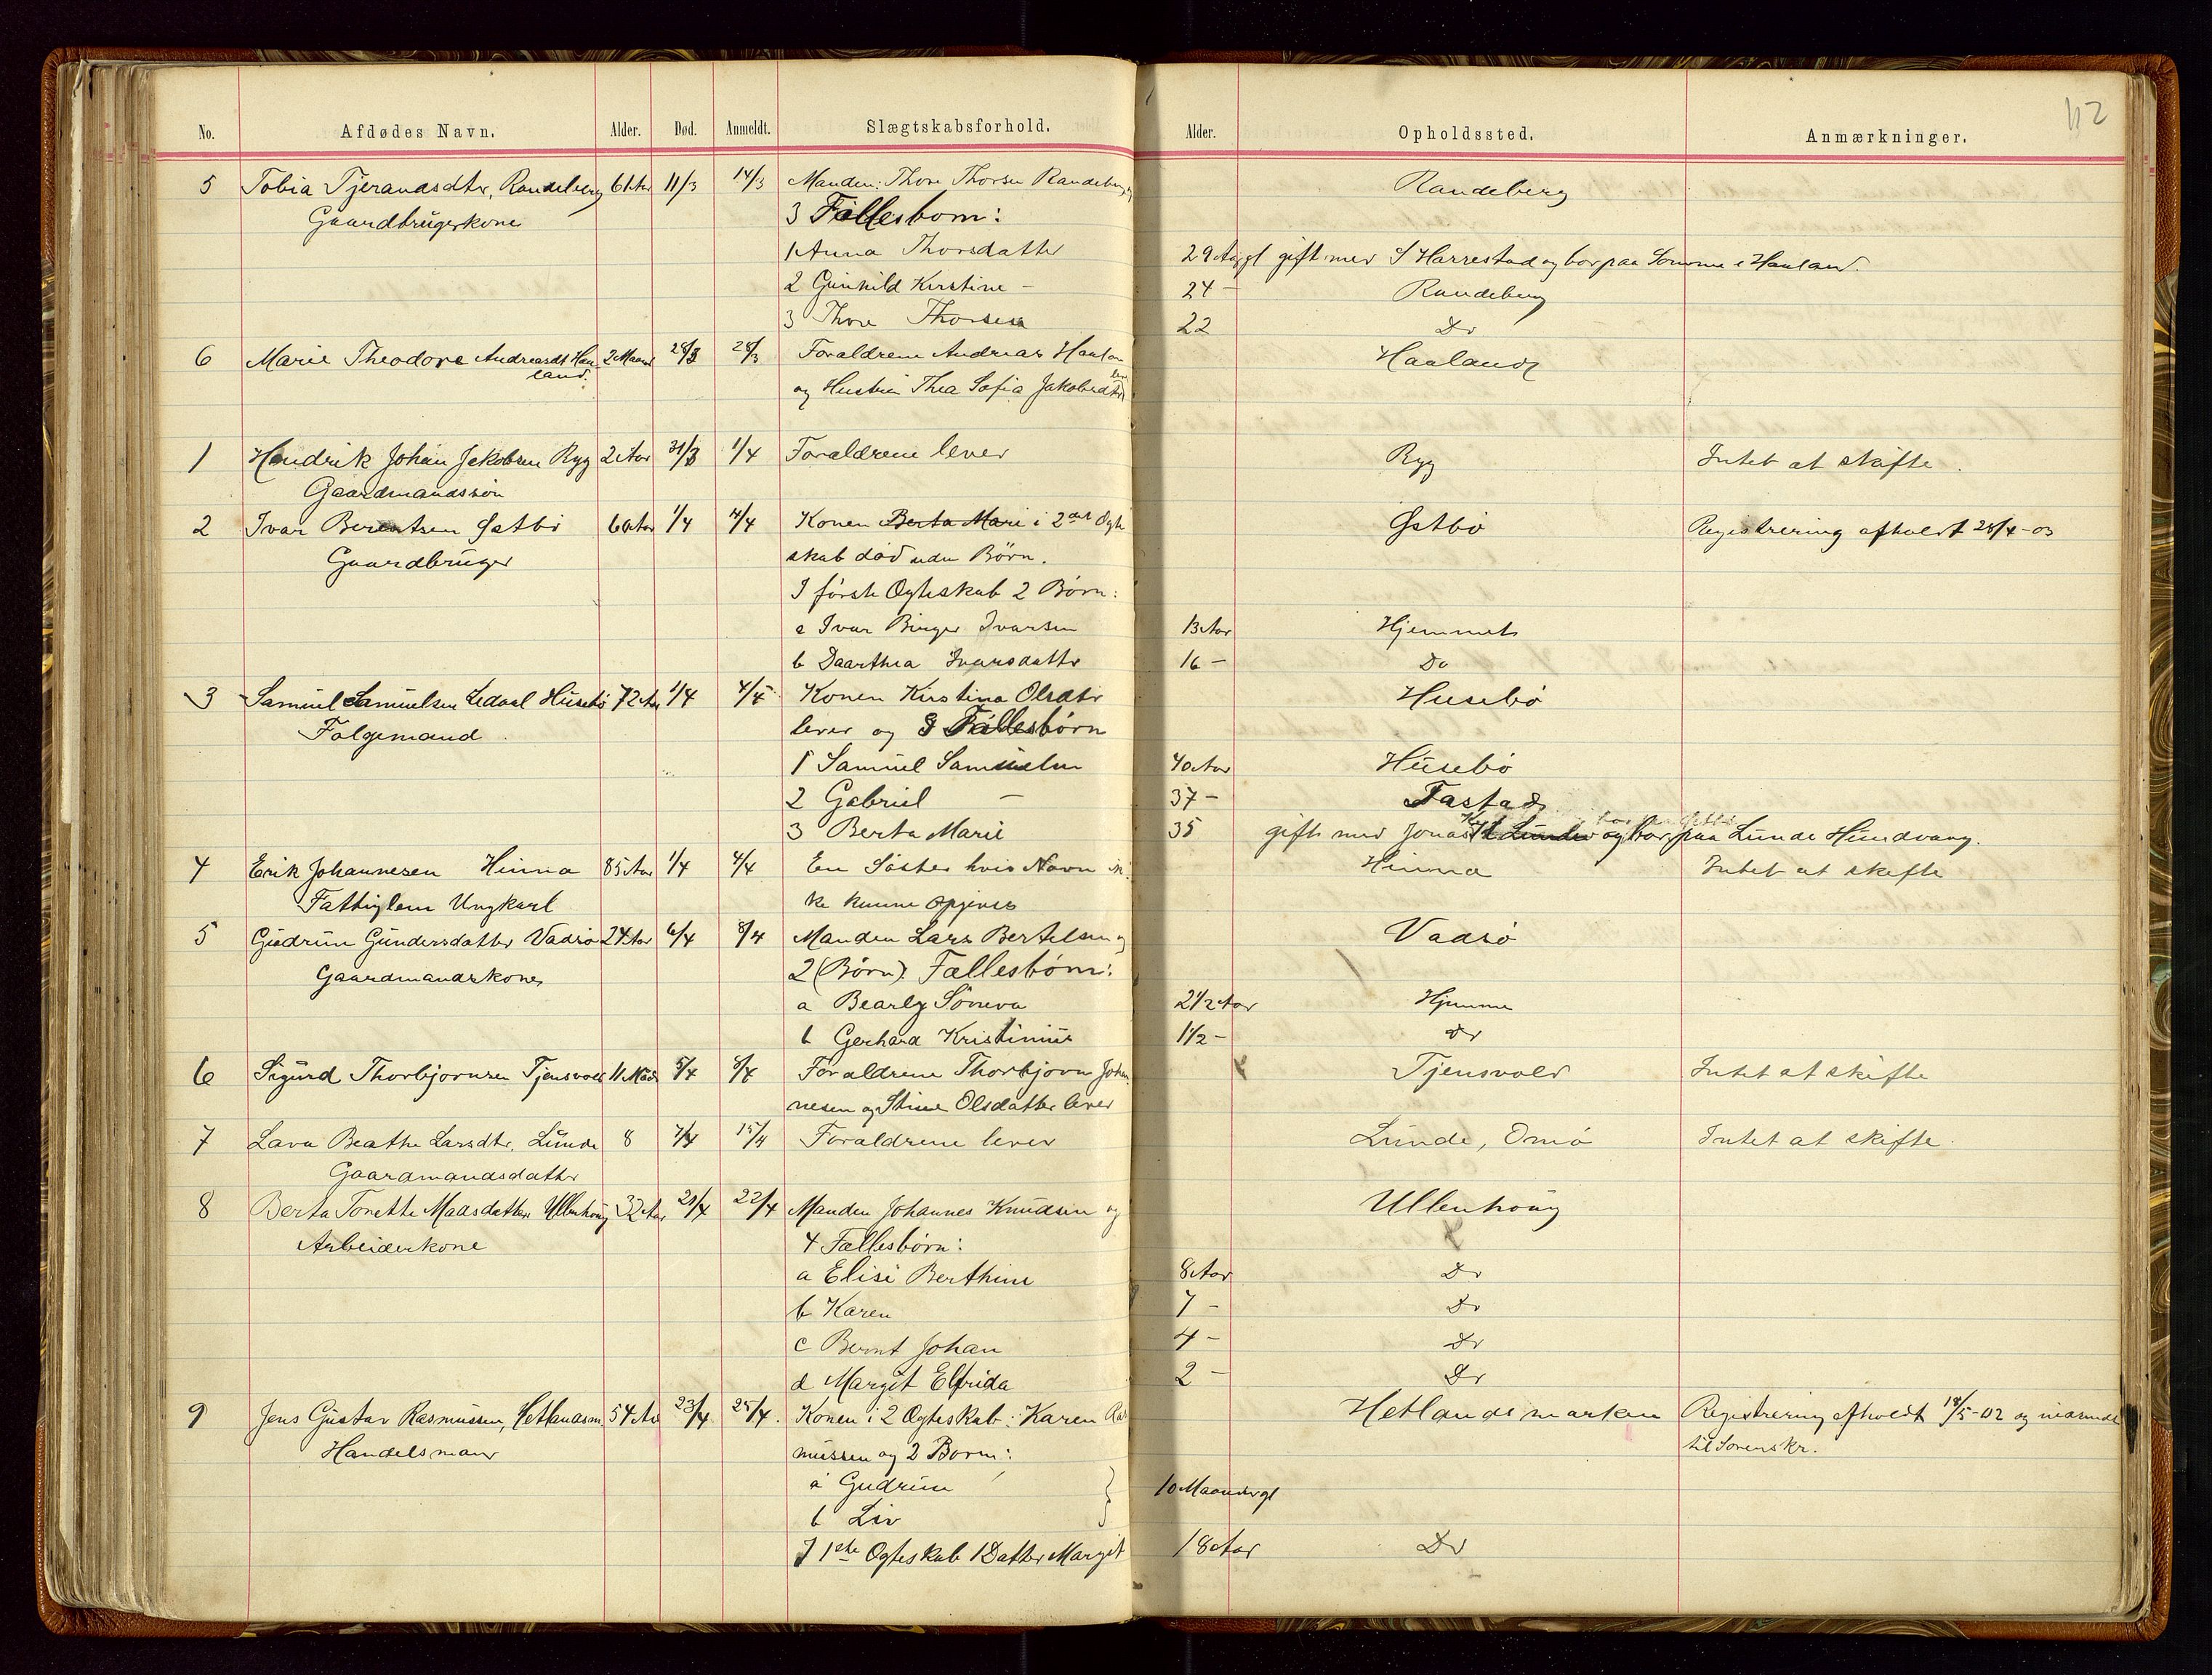 112
No. Afdødes Navn. Alder. Død. Anmeldt. Slægtskabsforhold. Alder. Opholdssted. Anmærkninger.
5 Tobia Tjerandsdtr, Randeberg 61 Aar 11/3 14/3 Manden: Thore Thorsen Randeberg Randeberg
Gaardbrugerkone 3 Fællesborn:
1 Anna Thorsdatter 29 Aar gl gift med S Harrestad og bor paa Somme i Haaland.
2 Gunhild Kirstine – 24 – Randeberg
3 Thore Thorsen 22 Do
6 Marie Theodore Andreasdt Haa- 2 Maaned 28/3 Foraldrene Andreas Haaland Haaland
land. og Hustru Thea Sofia Jakobsdtr lever
1 Hendrik Johan Jakobsen Ryg 2 Aar 31/3 1/4 Foraldrene lever Ryg Intet at skifte.
Gaardmandssøn
2 Ivar Berentsen Østbö 60 Aar 1/4 4/4 Konen Berta Mari i 2det Ægte Østbö Registrering afholdt 28/4-03
Gaardbruger skab död uden Börn.
I förste Ægteskab 2 Börn:
a Ivar Birger Ivarsen 13 Aar Hjemmet
b Daarthea Ivarsdatter 16 – Do
3 Samuel Samuelsen Ledaal Husebö 72 Aar 1/4 4/4 Konen Kirstina Olsdtr Husebö
Folgemand lever og 3 Fællesbörn
1 Samuel Samuelsen 40 Aar Husebö
2 Gabriel – 37 – Tastad
3 Berta Marie 35 gift med Jonas og bor paa Lunde Hundvaag.
4 Erik Johannesen Hinna 85 Aar 1/4 4/4 En Söster hvis Navn ik- Hinna Intet at skifte
Fattiglem Ungkarl ke kunne opgives
5 Gudrun Gundersdatter Vadsö 24 Aar 6/4 8/4 Manden Lars Bertelsen og Vadsö
Gaardmandskone 2 (Börn). Fællesbörn:
a Bearly Söneva 2 1/2 Aar Hjemme
b Gerhard Kristinius 1 1/2 – Do
6 Sigurd Thorbjornsen Tjensvold 11 Mdr 5/4 8/4 Foraldrene Thorbjorn Johan- Tjensvold Intet at skifte
nesen og Stine Olsdatter lever
7 Lava Beathe Larsdtr, Lunde 8 7/4 15/4 Foraldrene lever Lunde, Omö Intet at skifte.
Gaardmandsdatter
8 Berta Tonette Maasdatter Ullenhoug 32 Aar 21/4 22/4 Manden Johannes Knudsen og Ullenhoug
Arbeiderkone 4 Fællesbörn:
a Elise Berthine 8 Aar Do
b Karen 7 – Do
c Bernt Johan 4 – Do
d Margit Elfrida 2 – Do
9 Jens Gustav Rasmussen, Hetlandsm. 54 Aar 23/4 25/4. Konen i 2 Ægteskab: Karen Ras- Hetlandsmarken Registrering afholdt 18/5-02 og indsendt
Handelsmand mussen og 2 Born: til Sorenskr.
a Gudrun 10 Maaneder gl
b Liv
I 1ste Ægteskab 1 Datter Margit 18 Aar Do